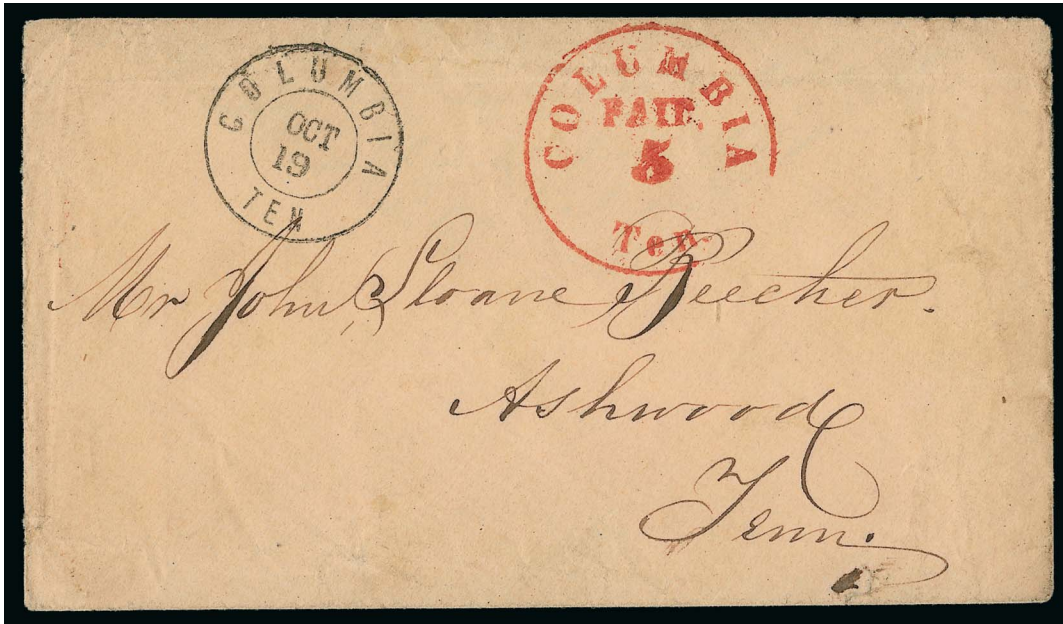 COLUMBIA
OCT
19
TEN
COLUMBIA
PAID.
5
Ten.
Mr John Sloane Beecher.
Ashwood
Tenn.